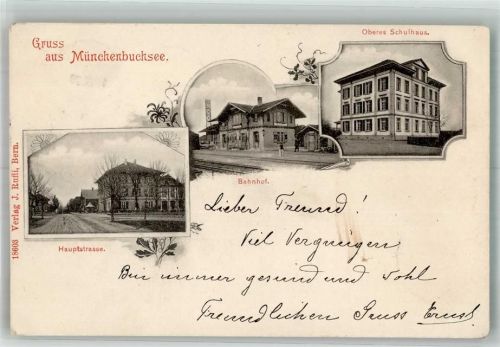 Gruss
aus Münckenbucksee.
Oberes Schulhaus.
Bahnhof.
Hauptstrasse.
18603 Verlag J. Ruffi, Bern.
Lieber Freund!
Viel Vergnugen
Bin immer gesund und wohl
Freundlichen Gruss Ernst